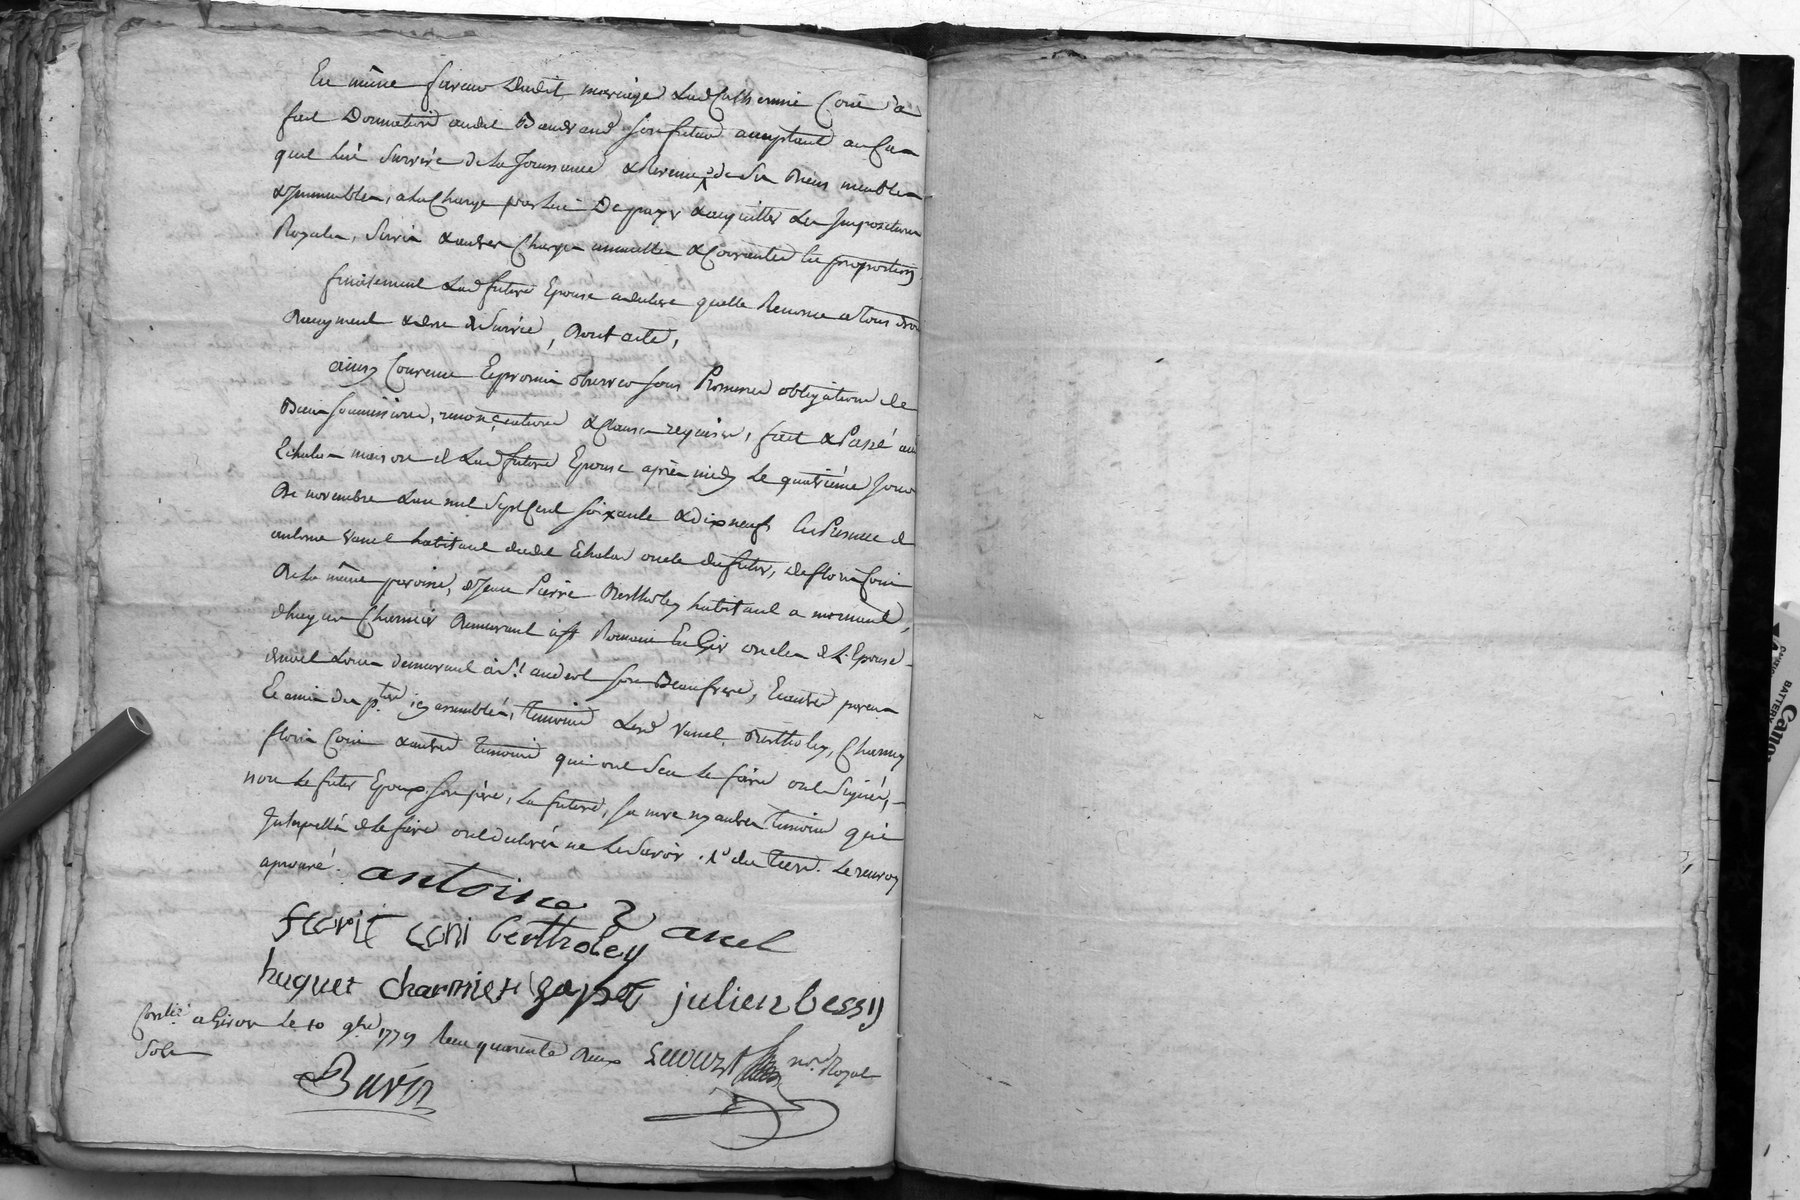 En même faveur dudit mariage Lad Catherinne Coni a
fait Donnation audit Baudrand son futur acceptant au Ca
quil lui Survive de la Jouissance & Revenus de ses Biens meubles
& Jmmeubles, a la Charge par lui De payer & acquitter les Jmpositions
Royales, Servis & autres Charges annuelles & Courantes les proportions
finalement Lad future Epouse a declaré quelle Renonce a tous droits
augment & de Survie, Dont acte,
ainsy Convenu Et promis observer sous Promesses obligations de
Biens soumissions, renonçiations & Clauses requises, fait & Passé au
Echalas maison de Lad future Epouse après midy Le quatrième Jour
De novembre L'an mil Sept Cent soixante & dix neuf En Presence de
antoine Vanel habitant dudit Echalas oncle du futur, de floris Coni
De la même paroisse, de Jean Pierre Bertholey habitant a mornant,
d'hugues Charmier Demeurant à st Romain En Gier oncles de L'Epouse
demeurant à St. andeol son Beaufrere, Et autres parens
Et amis des p.tes icy assemblés, temoins Lesd Vanel, Bertholey, Charmier
floris Coni & autres temoins qui ont Seu le faire ont Signé,
non le futur Epoux Son père, La future, sa mere ny autres temoins qui
Jnterpellés de le faire ont declarés ne le Savoir. Le renvoy
aprouvé.
antoine Vanel
floris coni bertholey
hugues charmier gapet julien bessy
Conlé a Givors Le 10 9bre 1779 Reçu quarante Deux
Sols
nre. Royal